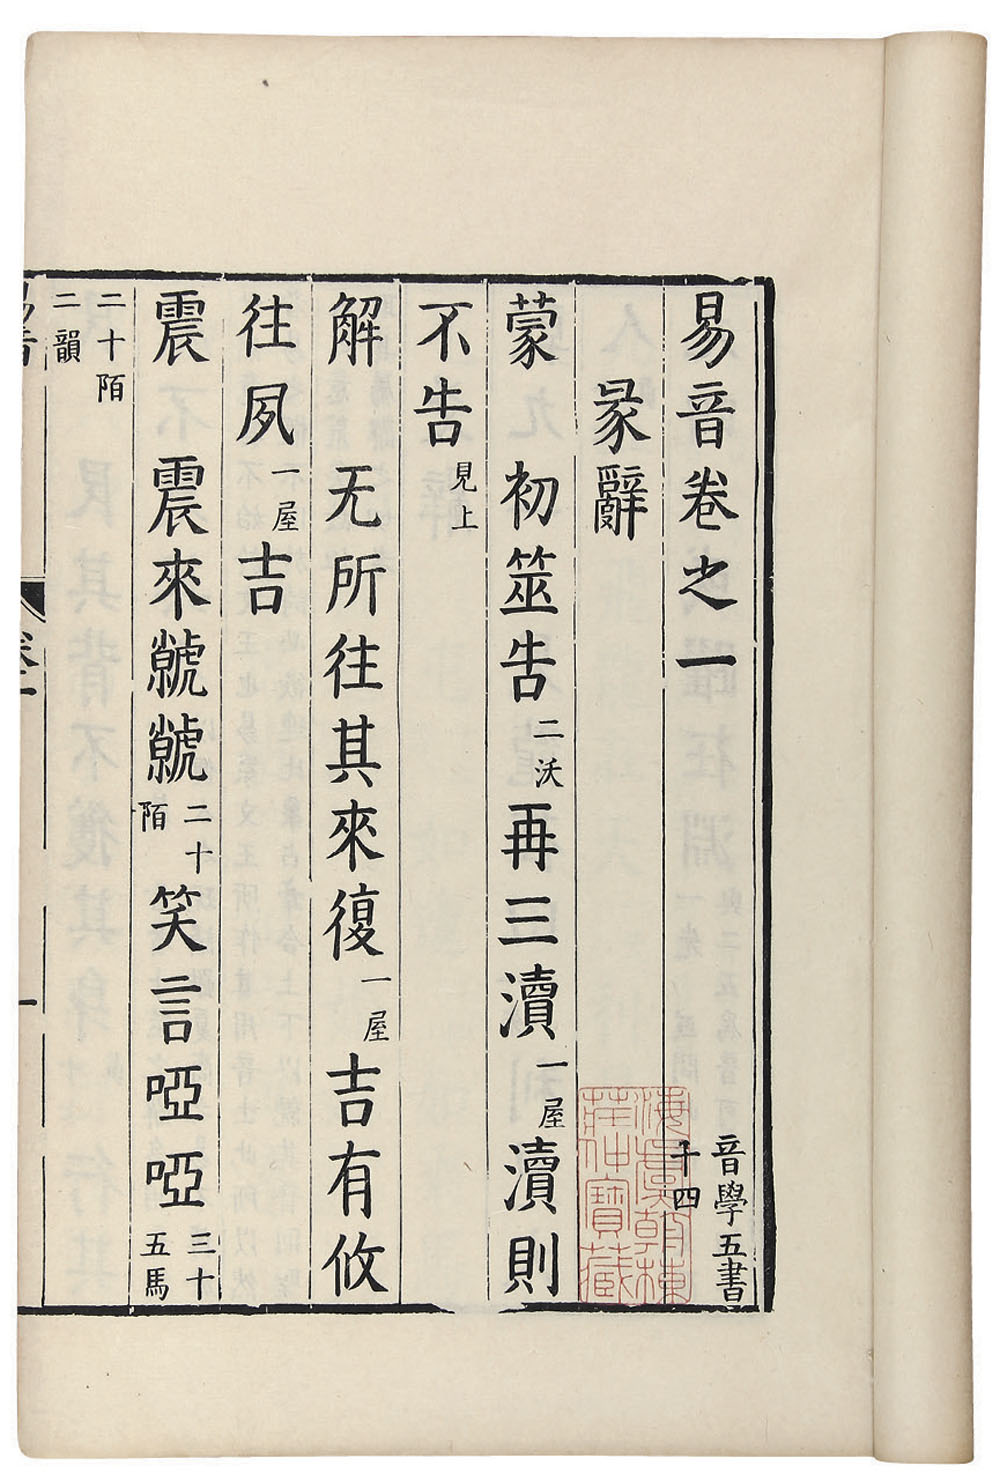 易音卷之一　音學五書
十四
彖辭
蒙　初筮告二沃再三瀆一屋瀆則
不告見上
解　无所往其來復一屋吉有攸
往夙一屋吉
震　震來虩虩二十陌笑言啞啞三十五馬
二十陌
二韻
易音　卷一　一